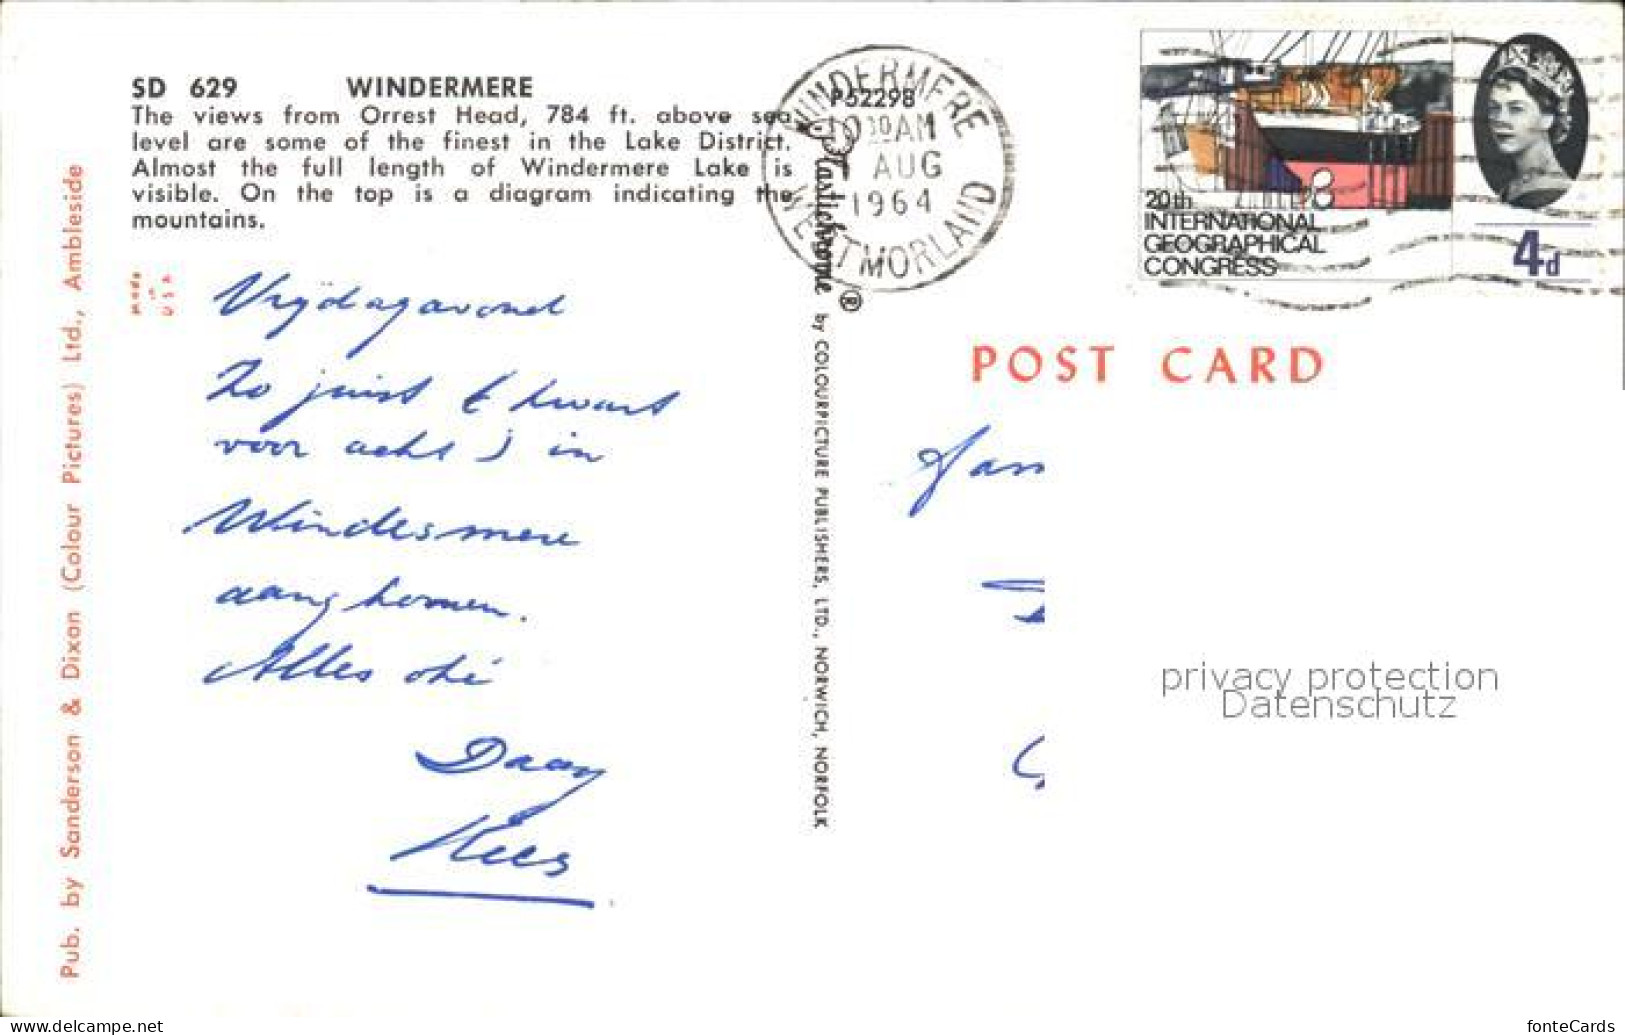 SD 629 WINDERMERE
The views from Orrest Head, 784 ft. above sea
level are some of the finest in the Lake District.
Almost the full length of Windermere Lake is
visible. On the top is a diagram indicating the
mountains.
made
in
USA
Pub. by Sanderson & Dixon (Colour Pictures) Ltd., Ambleside
Vrijdagavond
Zo juist kwart
voor acht in
Windesmere
aangkomen.
Alles oké
Daag
Kees
P52298
Plastichrome ® by COLOURPICTURE PUBLISHERS, LTD., NORWICH, NORFOLK
WINDERMERE
10 30 AM
AUG
1964
WESTMORLAND
20th
INTERNATIONAL
GEOGRAPHICAL
CONGRESS
4d
POST CARD
Fam
privacy protection
Datenschutz
delcampe.net
fonteCards